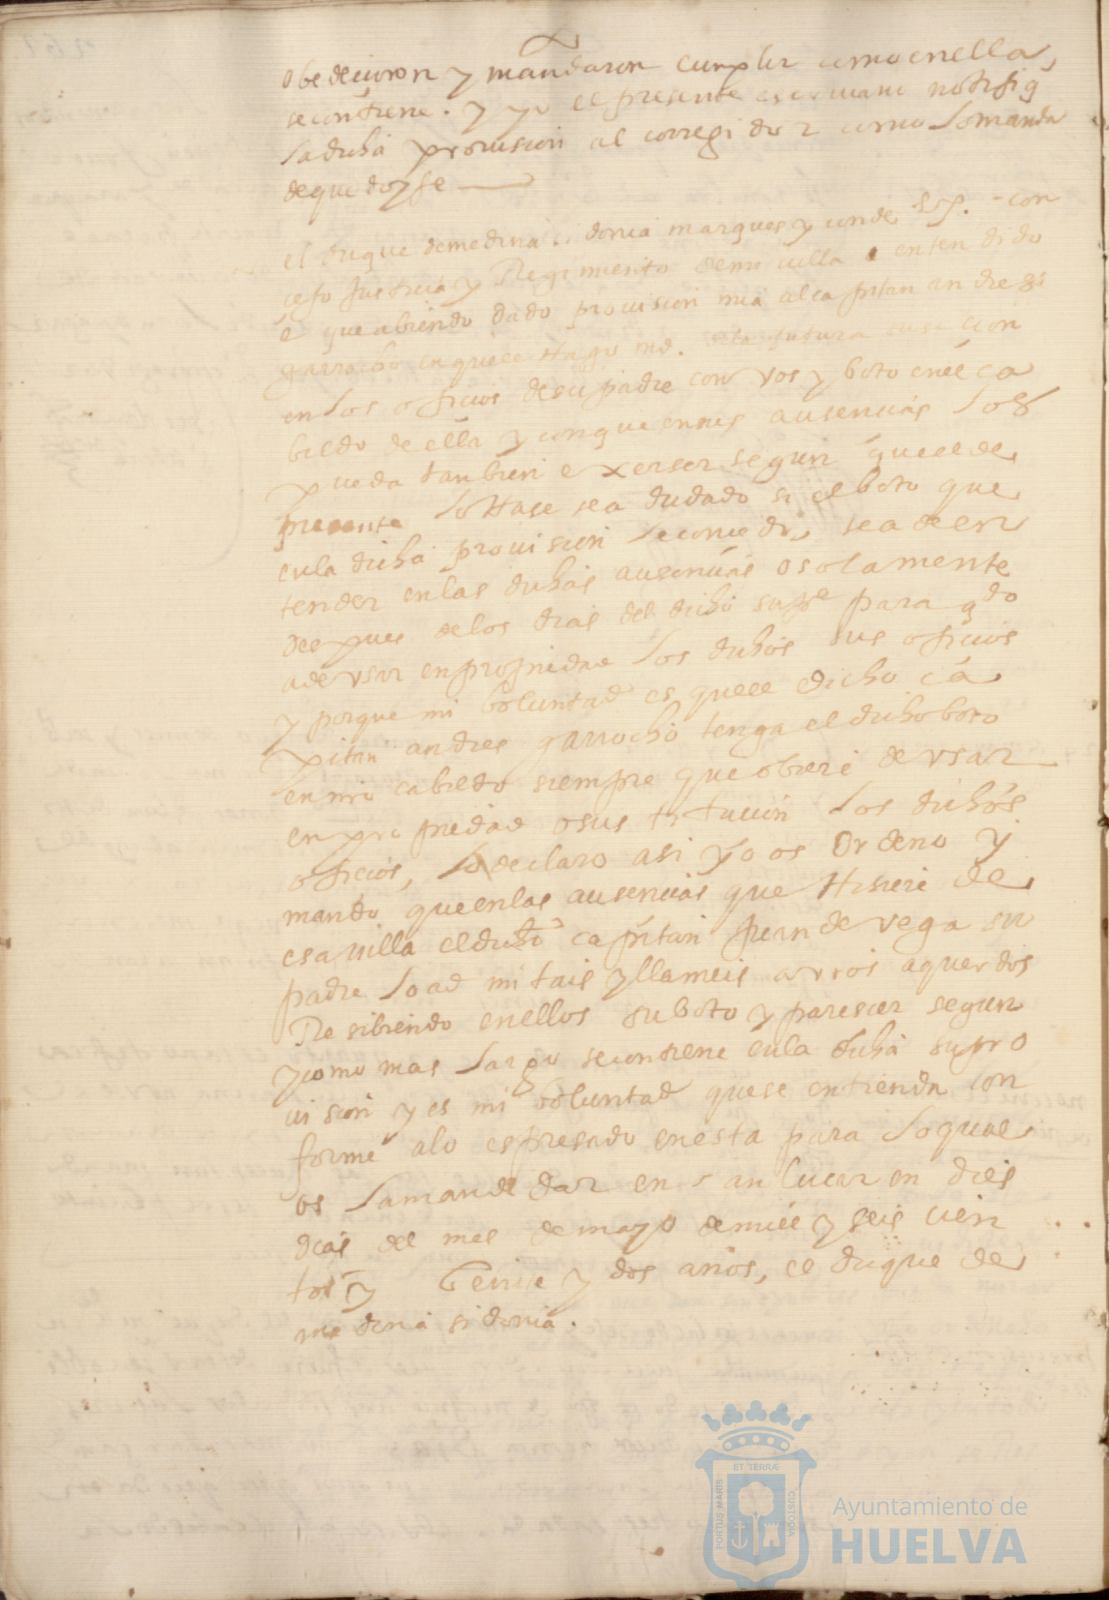 obedecieron y mandaron cumplir como en ella
se contiene. y yo el presente escrivano notifiq
la dicha provision al corregidor como lo manda
de que doy fe
el duque de medina sidonia marques y conde &. - con
cejo justicia y Regimiento de mi villa entendido
e que abiendo dado provision mia al capitan andres
garrocho en que le Hago md. de la futura susecion
en los oficios de su padre con vos y boto en el ca
bildo de ella y con que en sus ausencias los
pueda tanbien exerser segun que el de
presente lo Hase se a dudado si el boto que
en la dicha provision le concedo, se a de en
tender en las dichas ausencias o solamente
despues de los dias del dicho su pe para qdo
a de usar en propiedad los dichos sus oficios
y porque mi boluntad es que el dicho ca
pitan andres garrocho tenga el dicho boto
en mi cabildo siempre que obiere de usar
en propiedad o sustitucion los dichos
oficios, lo declaro asi y os ordeno y
mando que en las ausencias que Hisiere de
esa villa el dicho capitan juan de vega su
padre lo admitais y llameis a vros aquerdos
Resibiendo en ellos su boto y pareser segun
y como mas largo se contiene en la dicha su pro
vision y es mi boluntad que se entienda con
forme a lo espresado en esta para lo qual
os la mande dar en san lucar en dies
dias del mes de mayo de mil y seis cien
tos y beinte y dos años, el duque de
medina sidonia.
PORTUS MARIS
ET TERRÆ
CUSTODIA
Ayuntamiento de
HUELVA